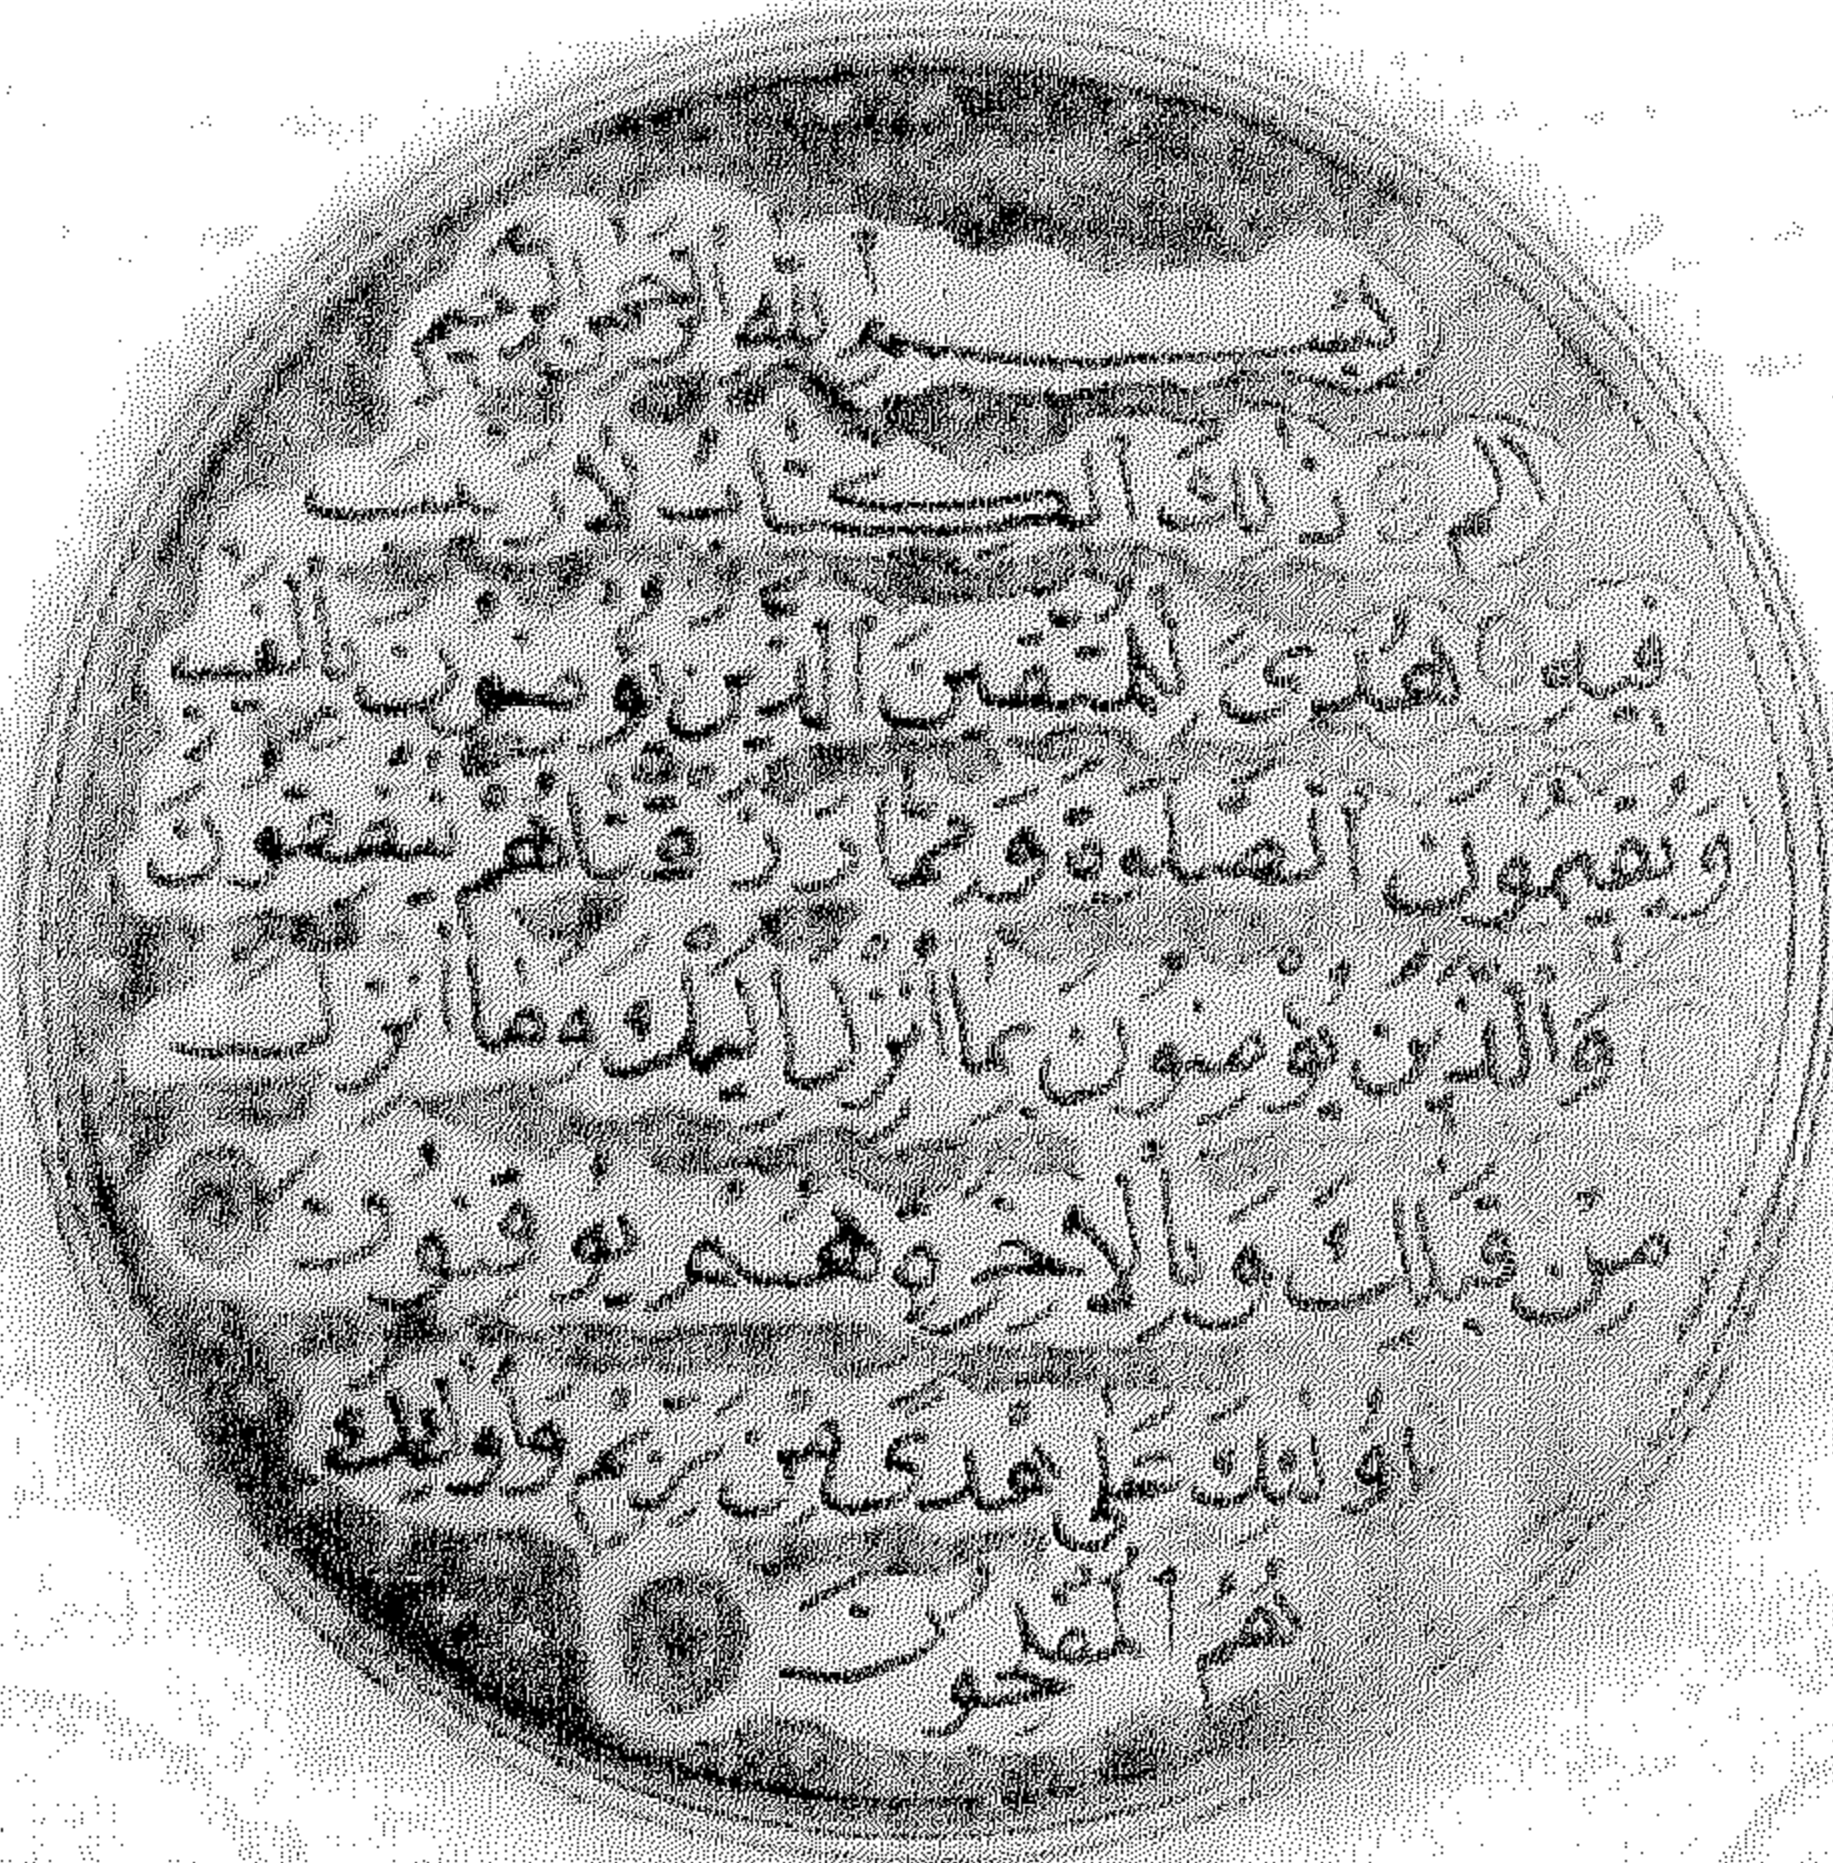 بسم الله الرحمن الرحيم
الم ذلك الكتاب لا ريب
فيه هدى للمتقين الذين يؤمنون بالغيب
ويقيمون الصلوة ومما رزقناهم ينفقون
والذين يؤمنون بما انزل اليك وما انزل
من قبلك وبالاخرة هم يوقنون
اولئك على هدى من ربهم واولئك
هم المفلحون